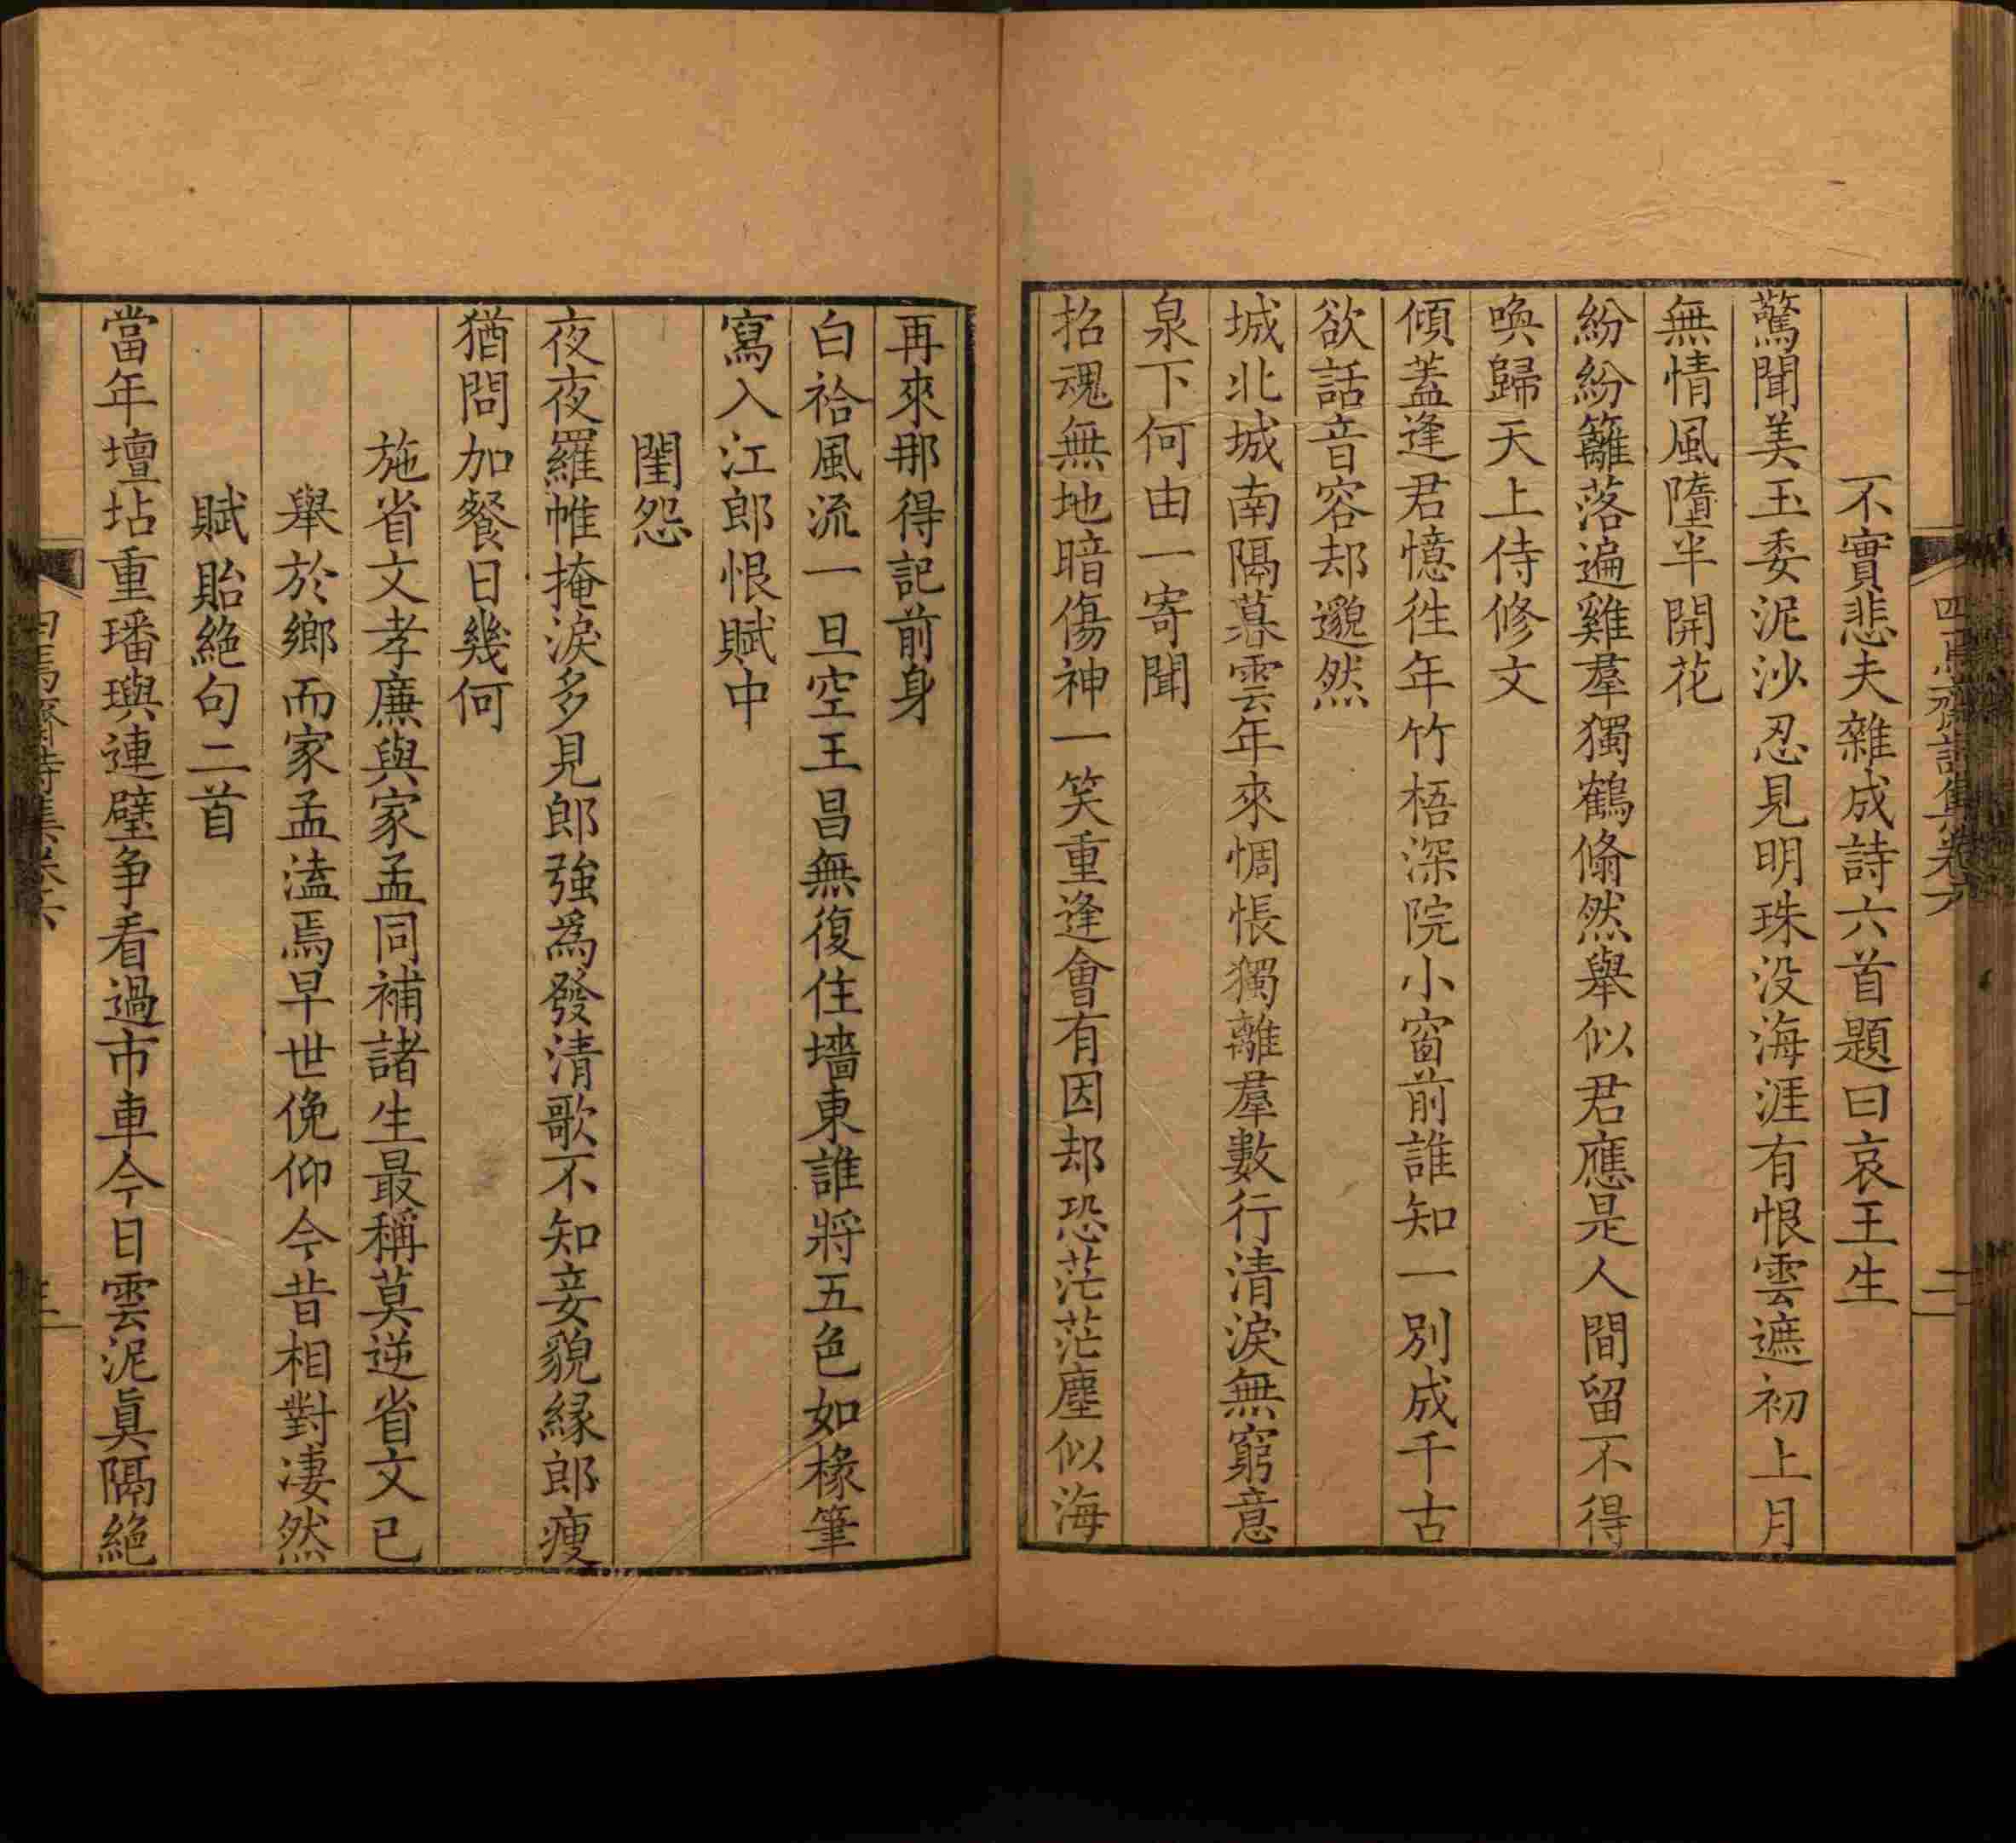 不實悲夫雜成詩六首題曰哀王生
驚聞美玉委泥沙忍見明珠没海涯有恨雲遮初上月
無情風墮半開花
紛紛籬落遍雞羣獨鶴翛然舉似君應是人間留不得
喚歸天上侍修文
傾蓋逢君憶徃年竹梧深院小窗前誰知一別成千古
欲話音容却邈然
城北城南隔暮雲年來惆悵獨離羣數行清淚無窮意
泉下何由一寄聞
招魂無地暗傷神一笑重逢會有因却恐茫茫塵似海
再來那得記前身
白袷風流一旦空王昌無復住墻東誰將五色如椽筆
寫入江郎恨賦中
閨怨
夜夜羅帷掩淚多見郎強爲發清歌不知妾貌緣郎瘦
猶問加餐日幾何
施省文孝廉與家孟同補諸生最稱莫逆省文已
舉於鄉而家孟溘焉早世俛仰今昔相對凄然
賦貽絶句二首
當年壇坫重璠璵連璧争看過市車今日雲泥眞隔絶